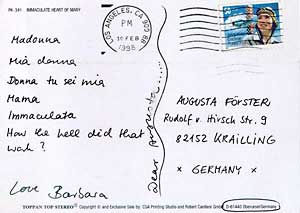 PK- 341 IMMACULATE HEART OF MARY
LOS ANGELES, CA 900 88
PM
10 FEB
1998
Madonna
Mia donna
Donna tu sei mia
Mama
Immaculata
How the hell did that
work?
Love Barbara
Dear Augusta
AUGUSTA FÖRSTER
Rudolf v. Hirsch Str. 9
82152 KRAILLING
× GERMANY ×
TOPPAN TOP STEREO Copyright © and Exclusive Sale by: C&A Printing Studio and Robert Cardens GmbH
D-61440 Oberursel/Germany